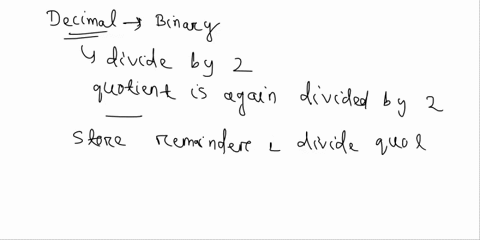 Decimal → Binary
↳ divide by 2
quotient is again divided by 2
store remainders & divide quot